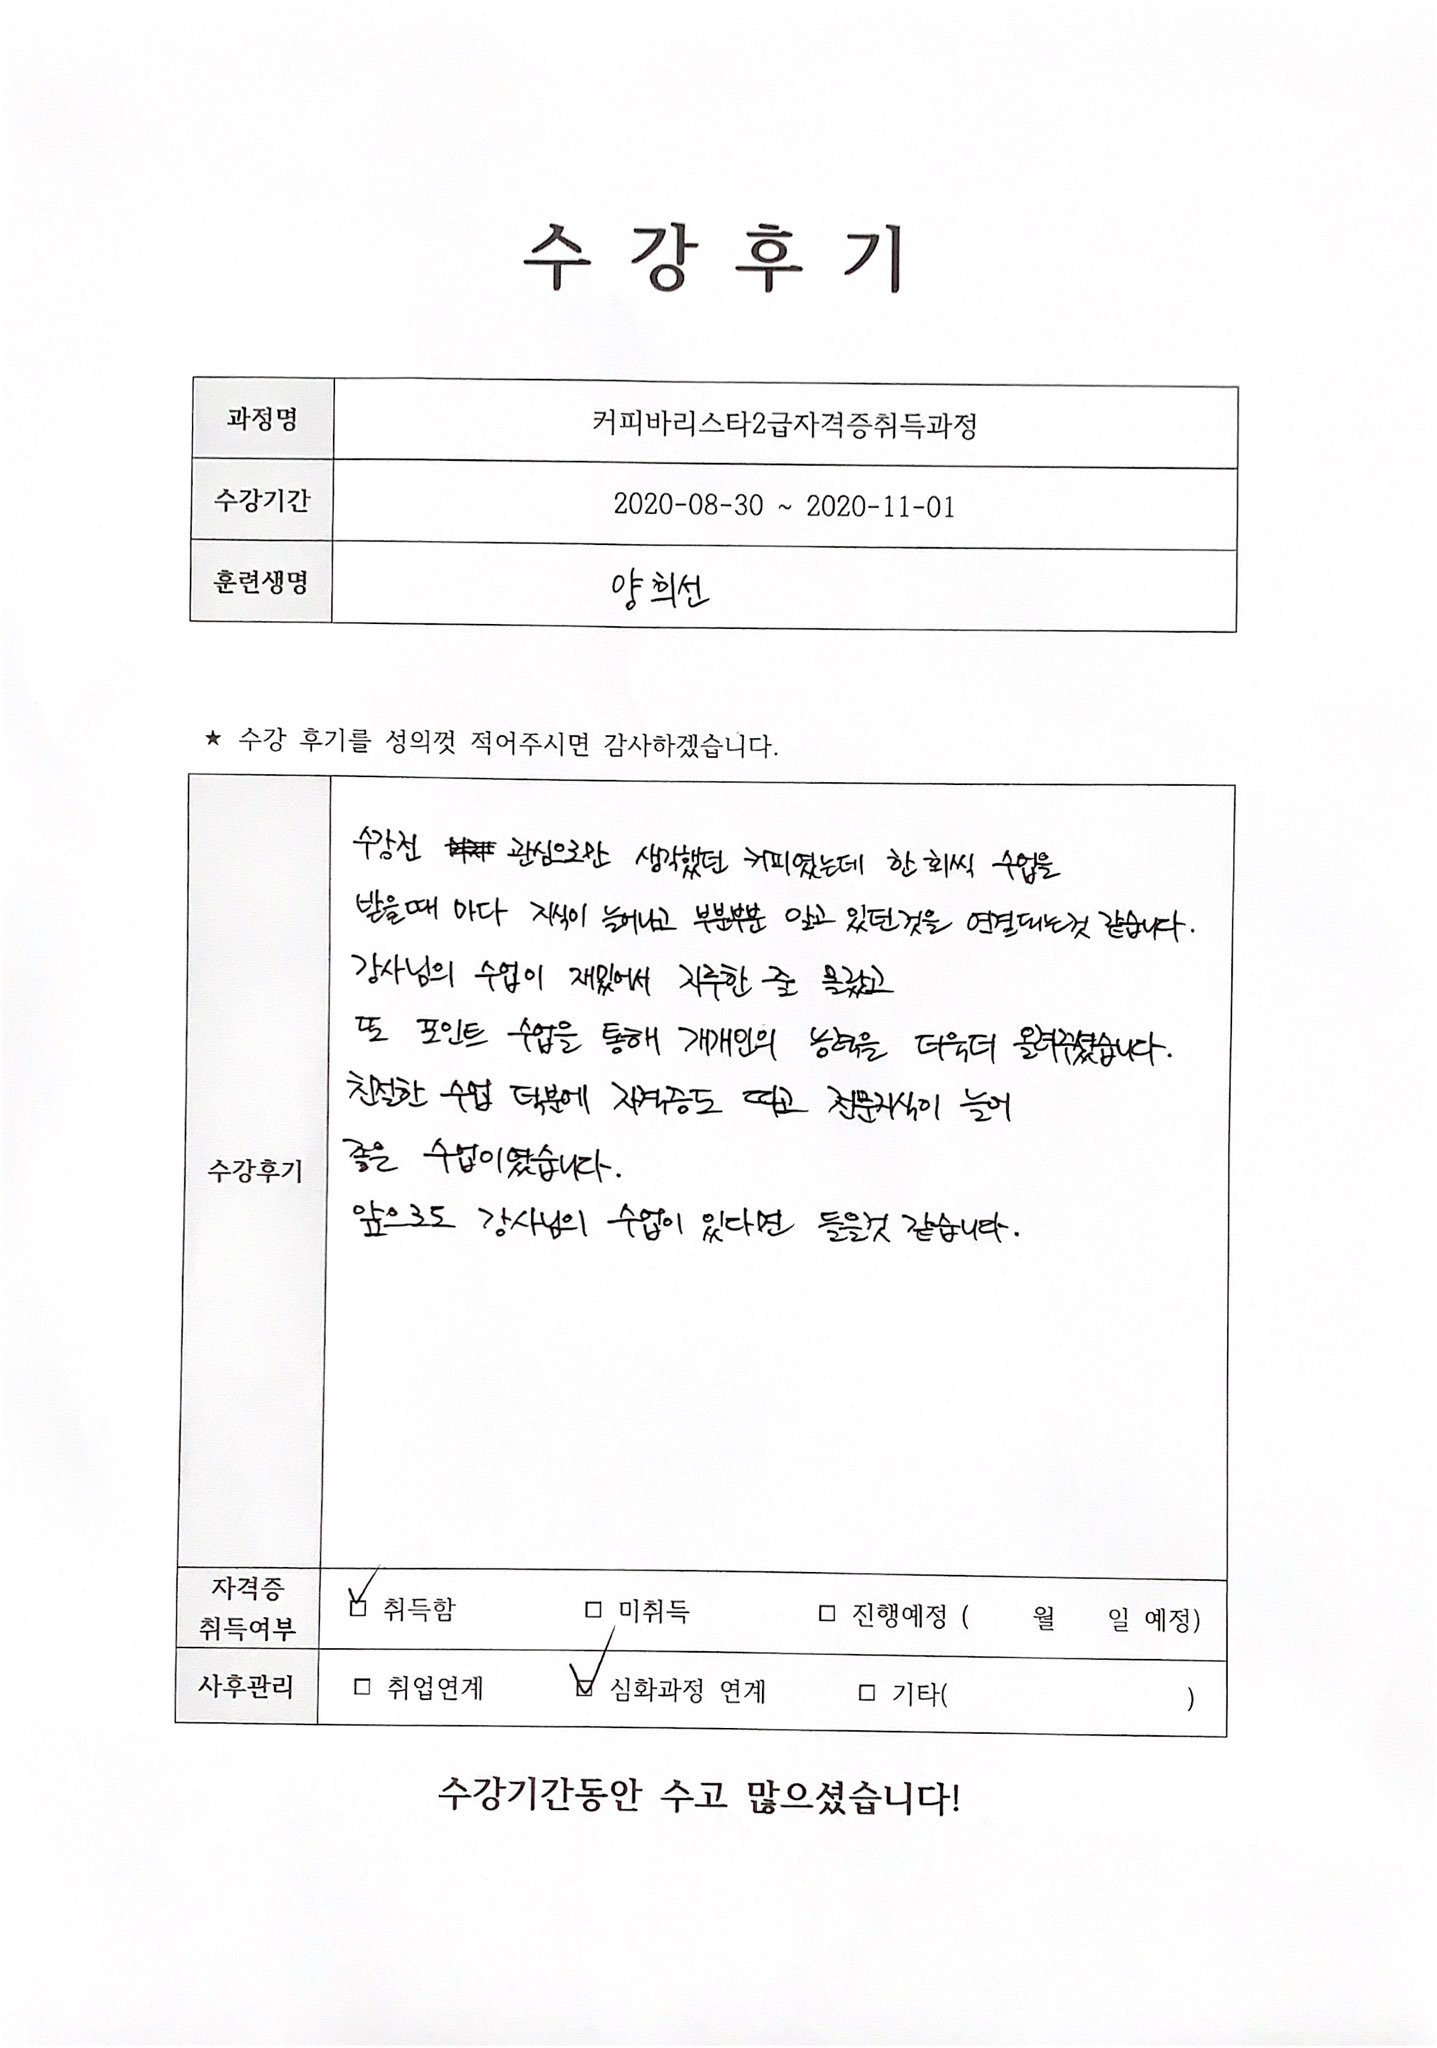 수강후기
과정명 커피바리스타2급자격증취득과정
수강기간 2020-08-30 ~ 2020-11-01
훈련생명 양희선
★ 수강 후기를 성의껏 적어주시면 감사하겠습니다.
수강전 관심으로만 생각했던 커피였는데 한 회씩 수업을
받을때 마다 지식이 늘어나고 부분부분 알고 있던것을 연결되는것 같습니다.
강사님의 수업이 재밌어서 지루한 줄 몰랐고
또 포인트 수업을 통해 개개인의 능력을 더욱더 올려주셨습니다.
친절한 수업 덕분에 자격증도 따고 전문지식이 늘어
좋은 수업이였습니다.
앞으로도 강사님의 수업이 있다면 들을것 같습니다.
수강후기
자격증
취득여부
☑ 취득함 □ 미취득 □ 진행예정 ( 월 일 예정)
사후관리 □ 취업연계 ☑ 심화과정 연계 □ 기타( )
수강기간동안 수고 많으셨습니다!